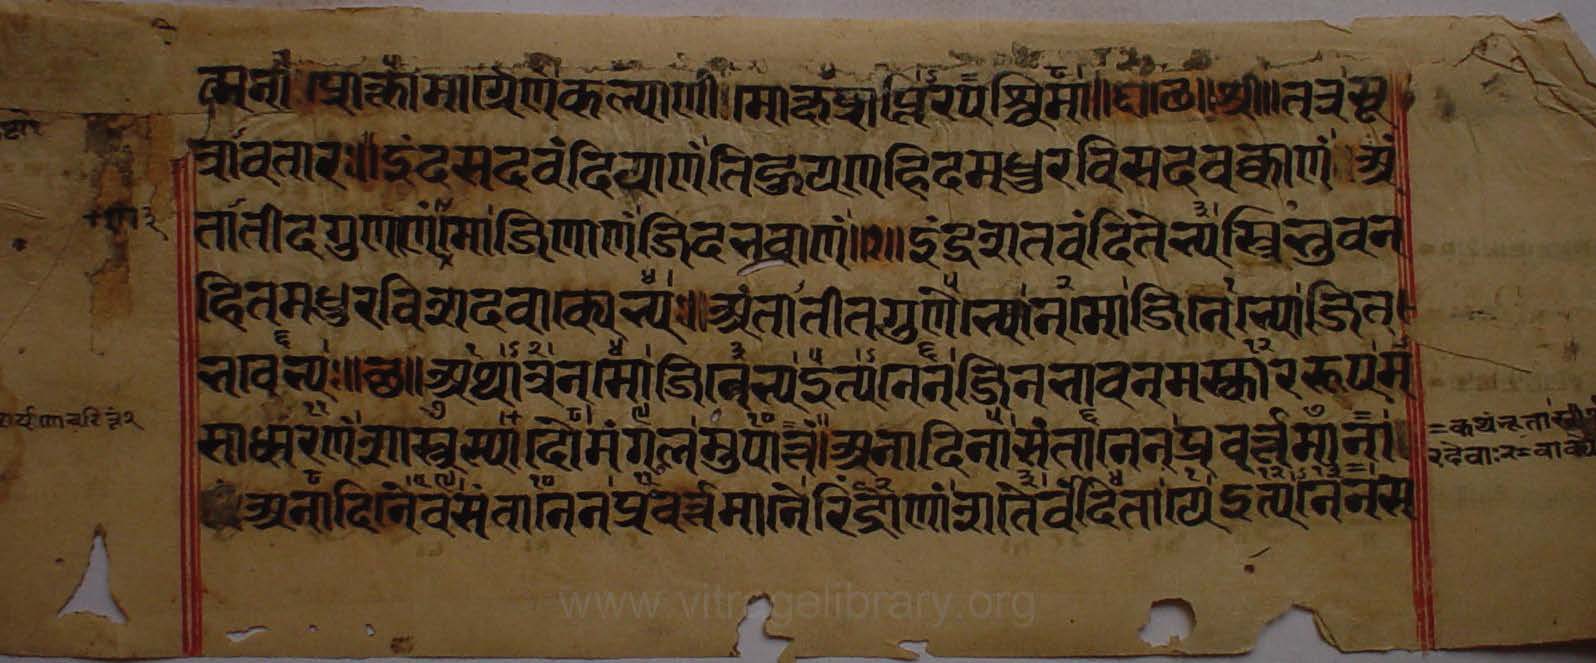 त्मनां प्राक्तो मार्गेण कल्याणी मोक्षप्राप्तिरपश्चिमा॥६॥ छ॥ श्री॥ तत्र सू
त्रावतारः॥ इंदसदवंदियाणं तिहुयणहिदमधुरविसदवक्काणं अं
तातीदगुणाणं णमो जिणाणं जिदभवाणं॥१॥ इंद्रशतवंदितेभ्यस्त्रिभुवन
हितमधुरविशदवाक्येभ्यः॥ अंतातीतगुणेभ्यो नमो जिनेभ्यो जित
भावेभ्यः॥छ॥ अथात्र नमो जिनेभ्य इत्यनेन जिनभावनमस्काररूपम
साधारणं शास्त्रस्यादौ मंगलमुपात्तं अनादिना संतानेन प्रवर्त्तमाना
अनादिनैव संतानेन प्रवर्त्तमानैरिंद्राणां शतैर्वंदिता ये इत्यनेन स
=कथंभूता
रदेवाः २=वाक्
www.vitragelibrary.org